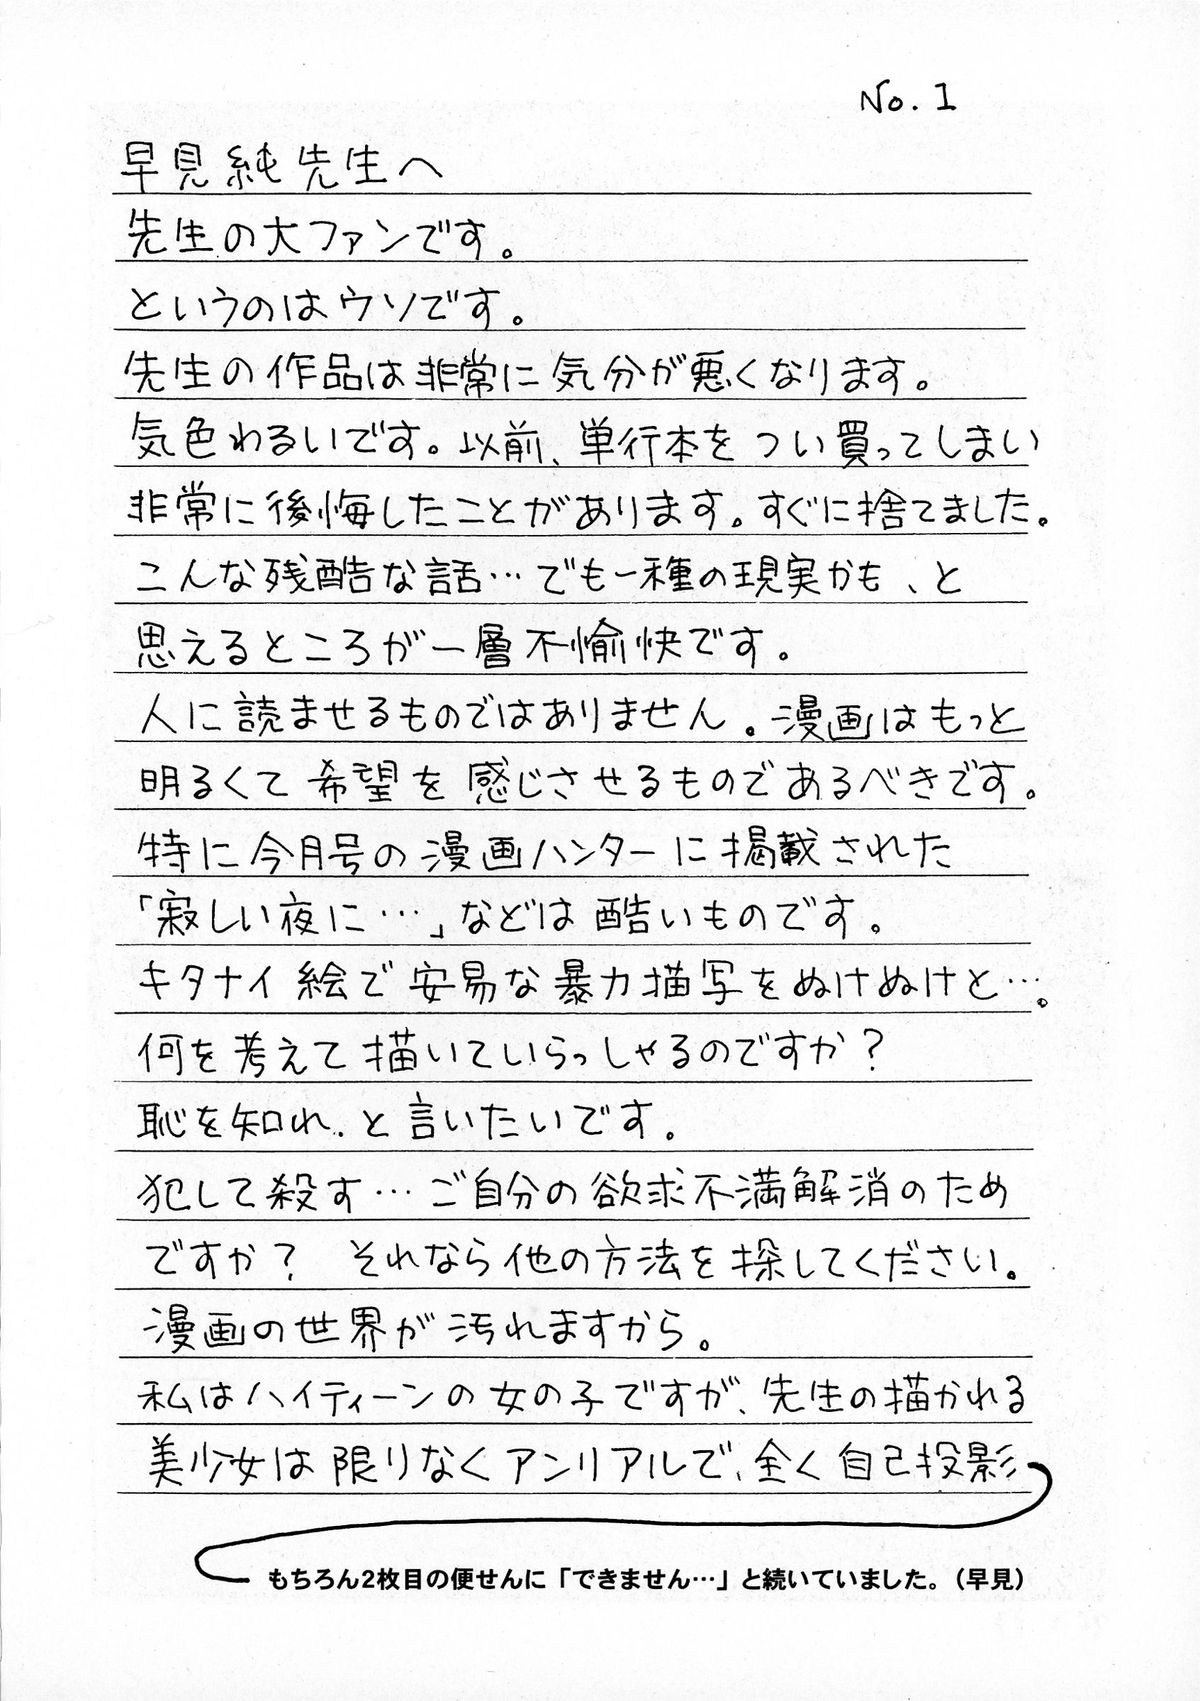 No. 1
早見純先生へ
先生の大ファンです。
というのはウソです。
先生の作品は非常に気分が悪くなります。
気色わるいです。以前、単行本をつい買ってしまい
非常に後悔したことがあります。すぐに捨てました。
こんな残酷な話…でも一種の現実かも、と
思えるところが一層不愉快です。
人に読ませるものではありません。漫画はもっと
明るくて希望を感じさせるものであるべきです。
特に今月号の漫画ハンターに掲載された
「寂しい夜に…」などは酷いものです。
キタナイ絵で安易な暴力描写をぬけぬけと…。
何を考えて描いていらっしゃるのですか?
恥を知れ、と言いたいです。
犯して殺す…ご自分の欲求不満解消のため
ですか? それなら他の方法を探してください。
漫画の世界が汚れますから。
私はハイティーンの女の子ですが、先生の描かれる
美少女は限りなくアンリアルで、全く自己投影
もちろん2枚目の便せんに「できません…」と続いていました。(早見)